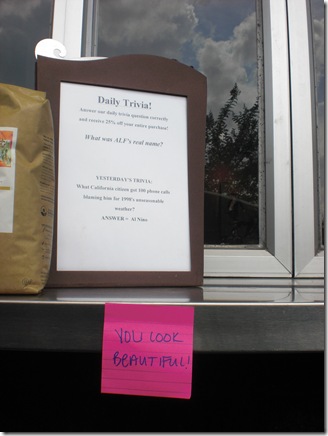 Daily Trivia!
Answer our daily trivia question correctly
and receive 25% off your entire purchase!
What was ALF's real name?
YESTERDAY'S TRIVIA:
What California citizen got 100 phone calls
blaming him for 1998's unseasonable
weather?
ANSWER = Al Nino
YOU LOOK
BEAUTIFUL!